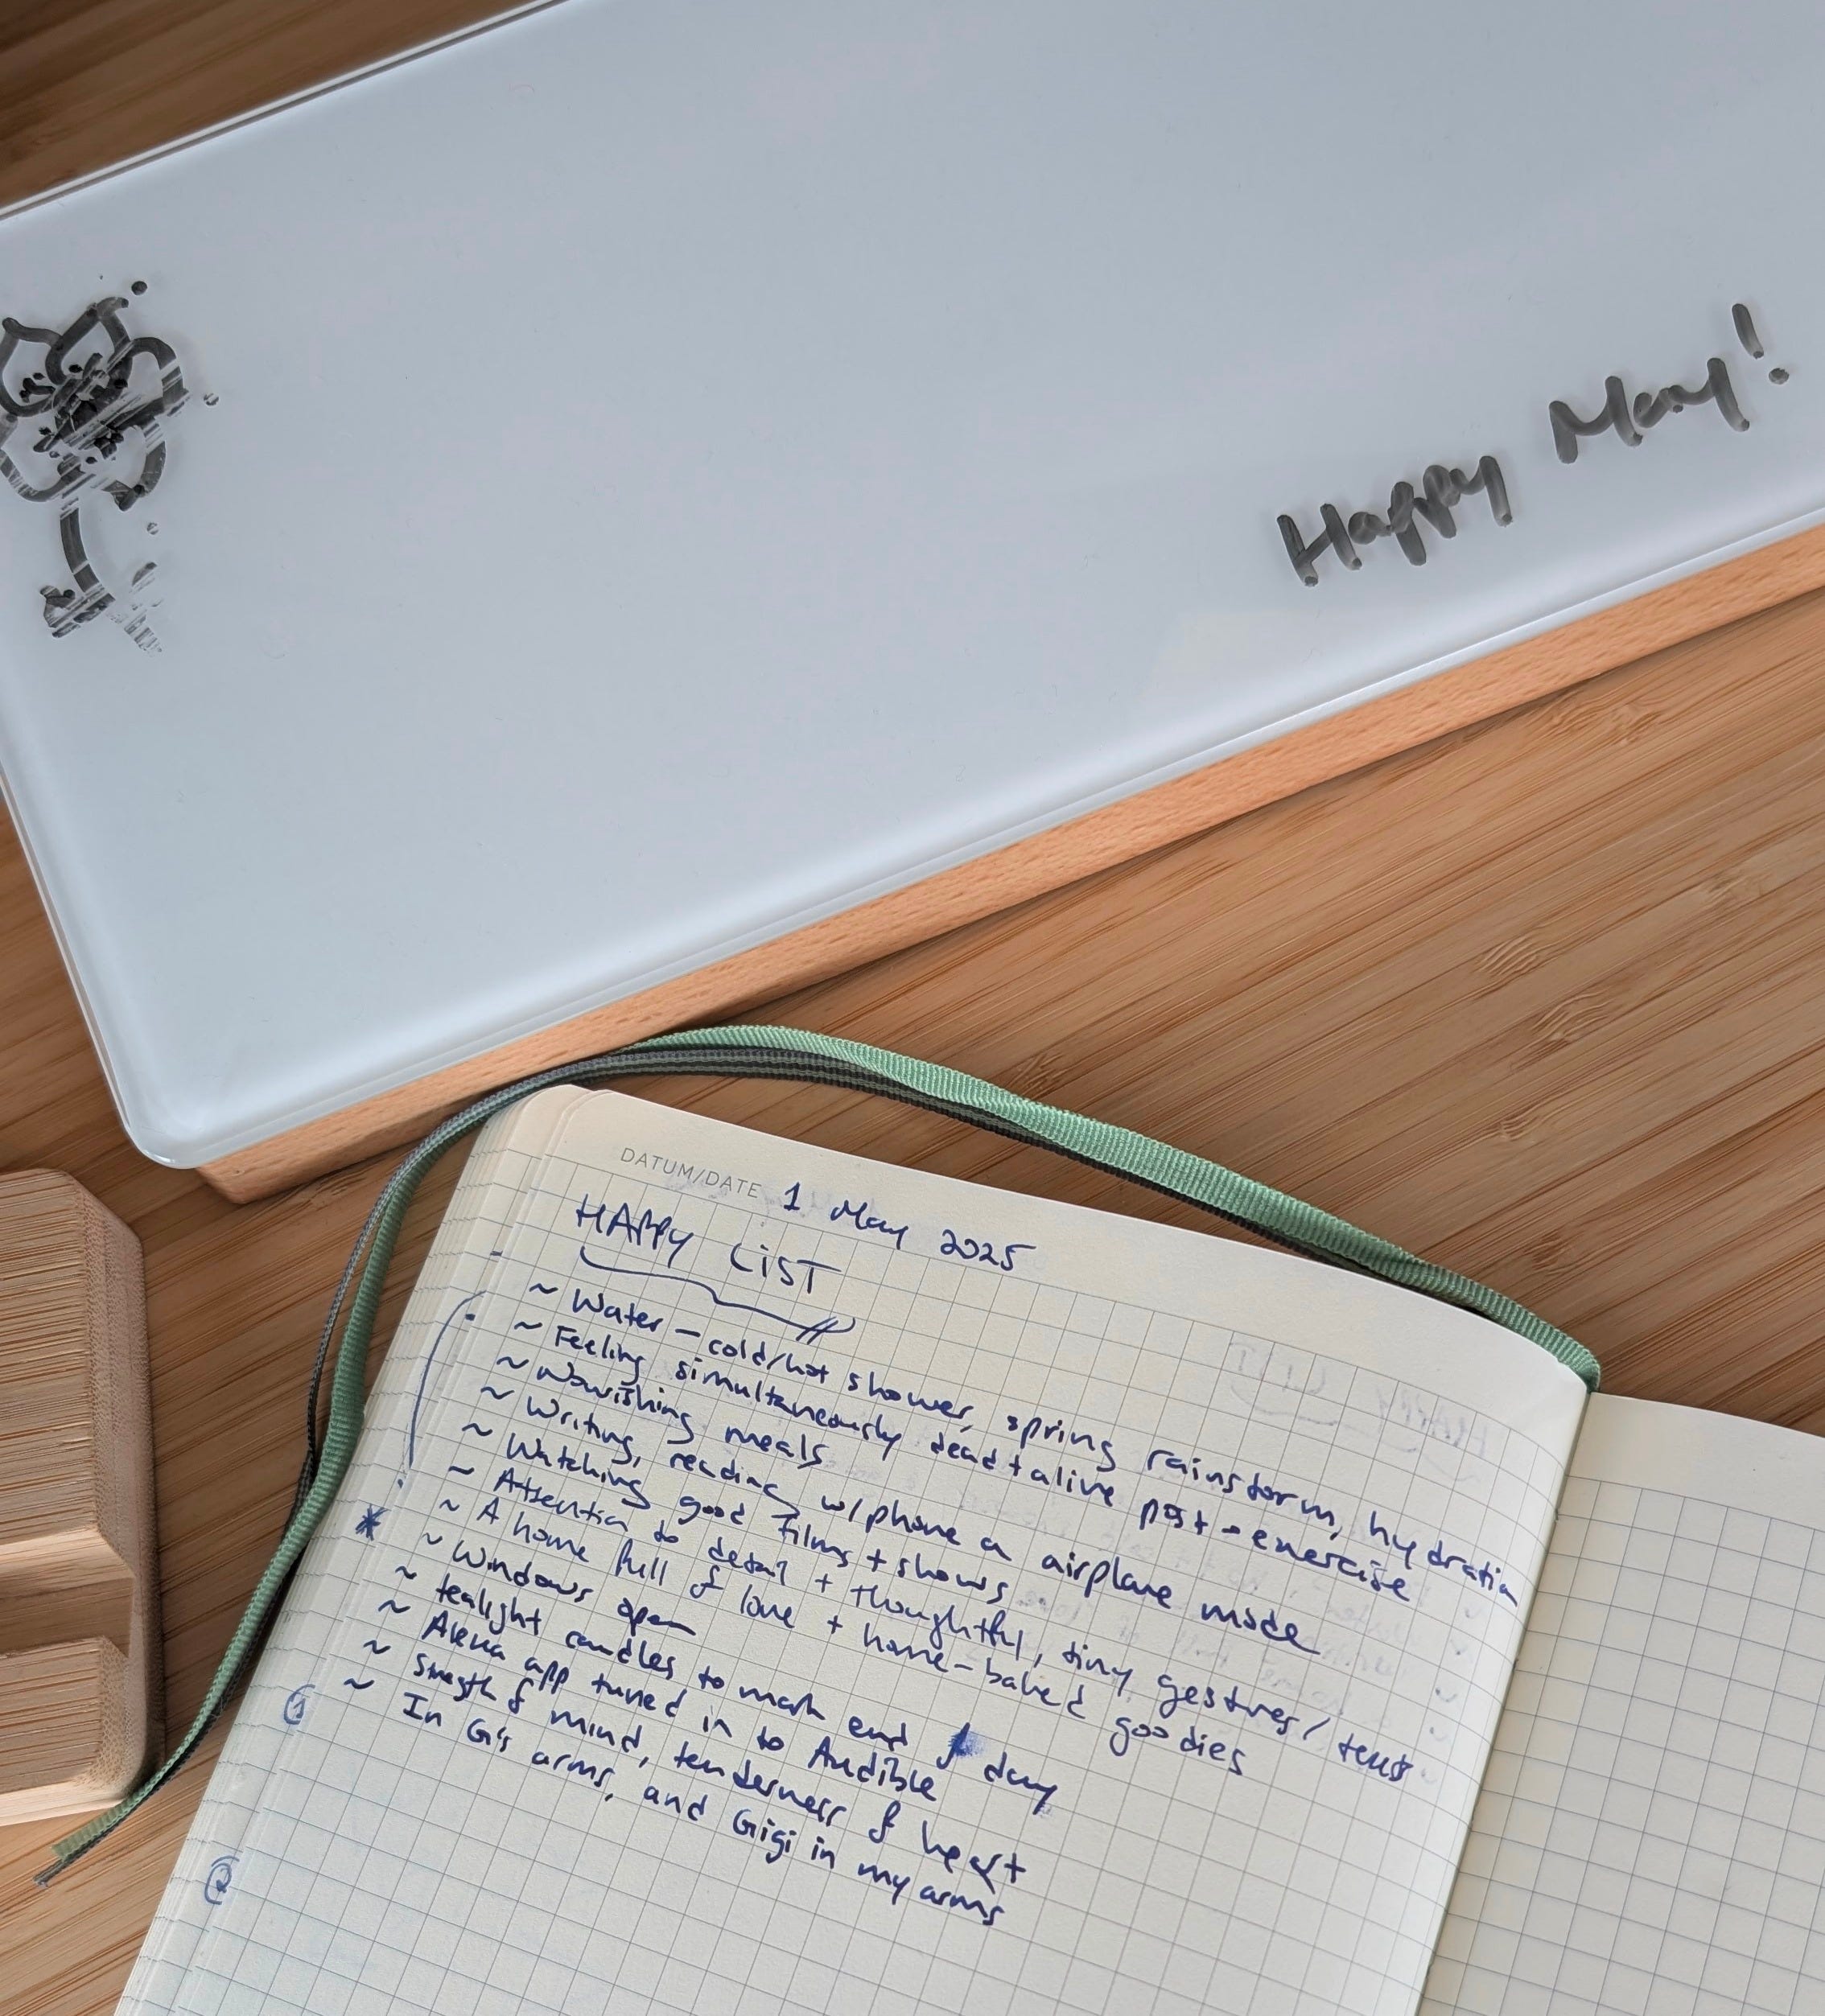 Happy May!
DATUM/DATE 1 May 2025
HAPPY LIST
~ Water - cold/hot shower, spring rainstorm, hydration
~ Feeling simultaneously dead + alive post-exercise
~ Nourishing meals
~ Writing, reading w/phone on airplane mode
~ Watching good films + shows
~ Attention to detail + thoughtful, tiny gestures / texts
~ A home full of love + home-baked goodies
~ Windows open
~ tealight candles to mark end of day
~ app tuned in to Audible
~ Strength of mind, tenderness of heart
~ In G's arms, and Gigi in my arms
1
2